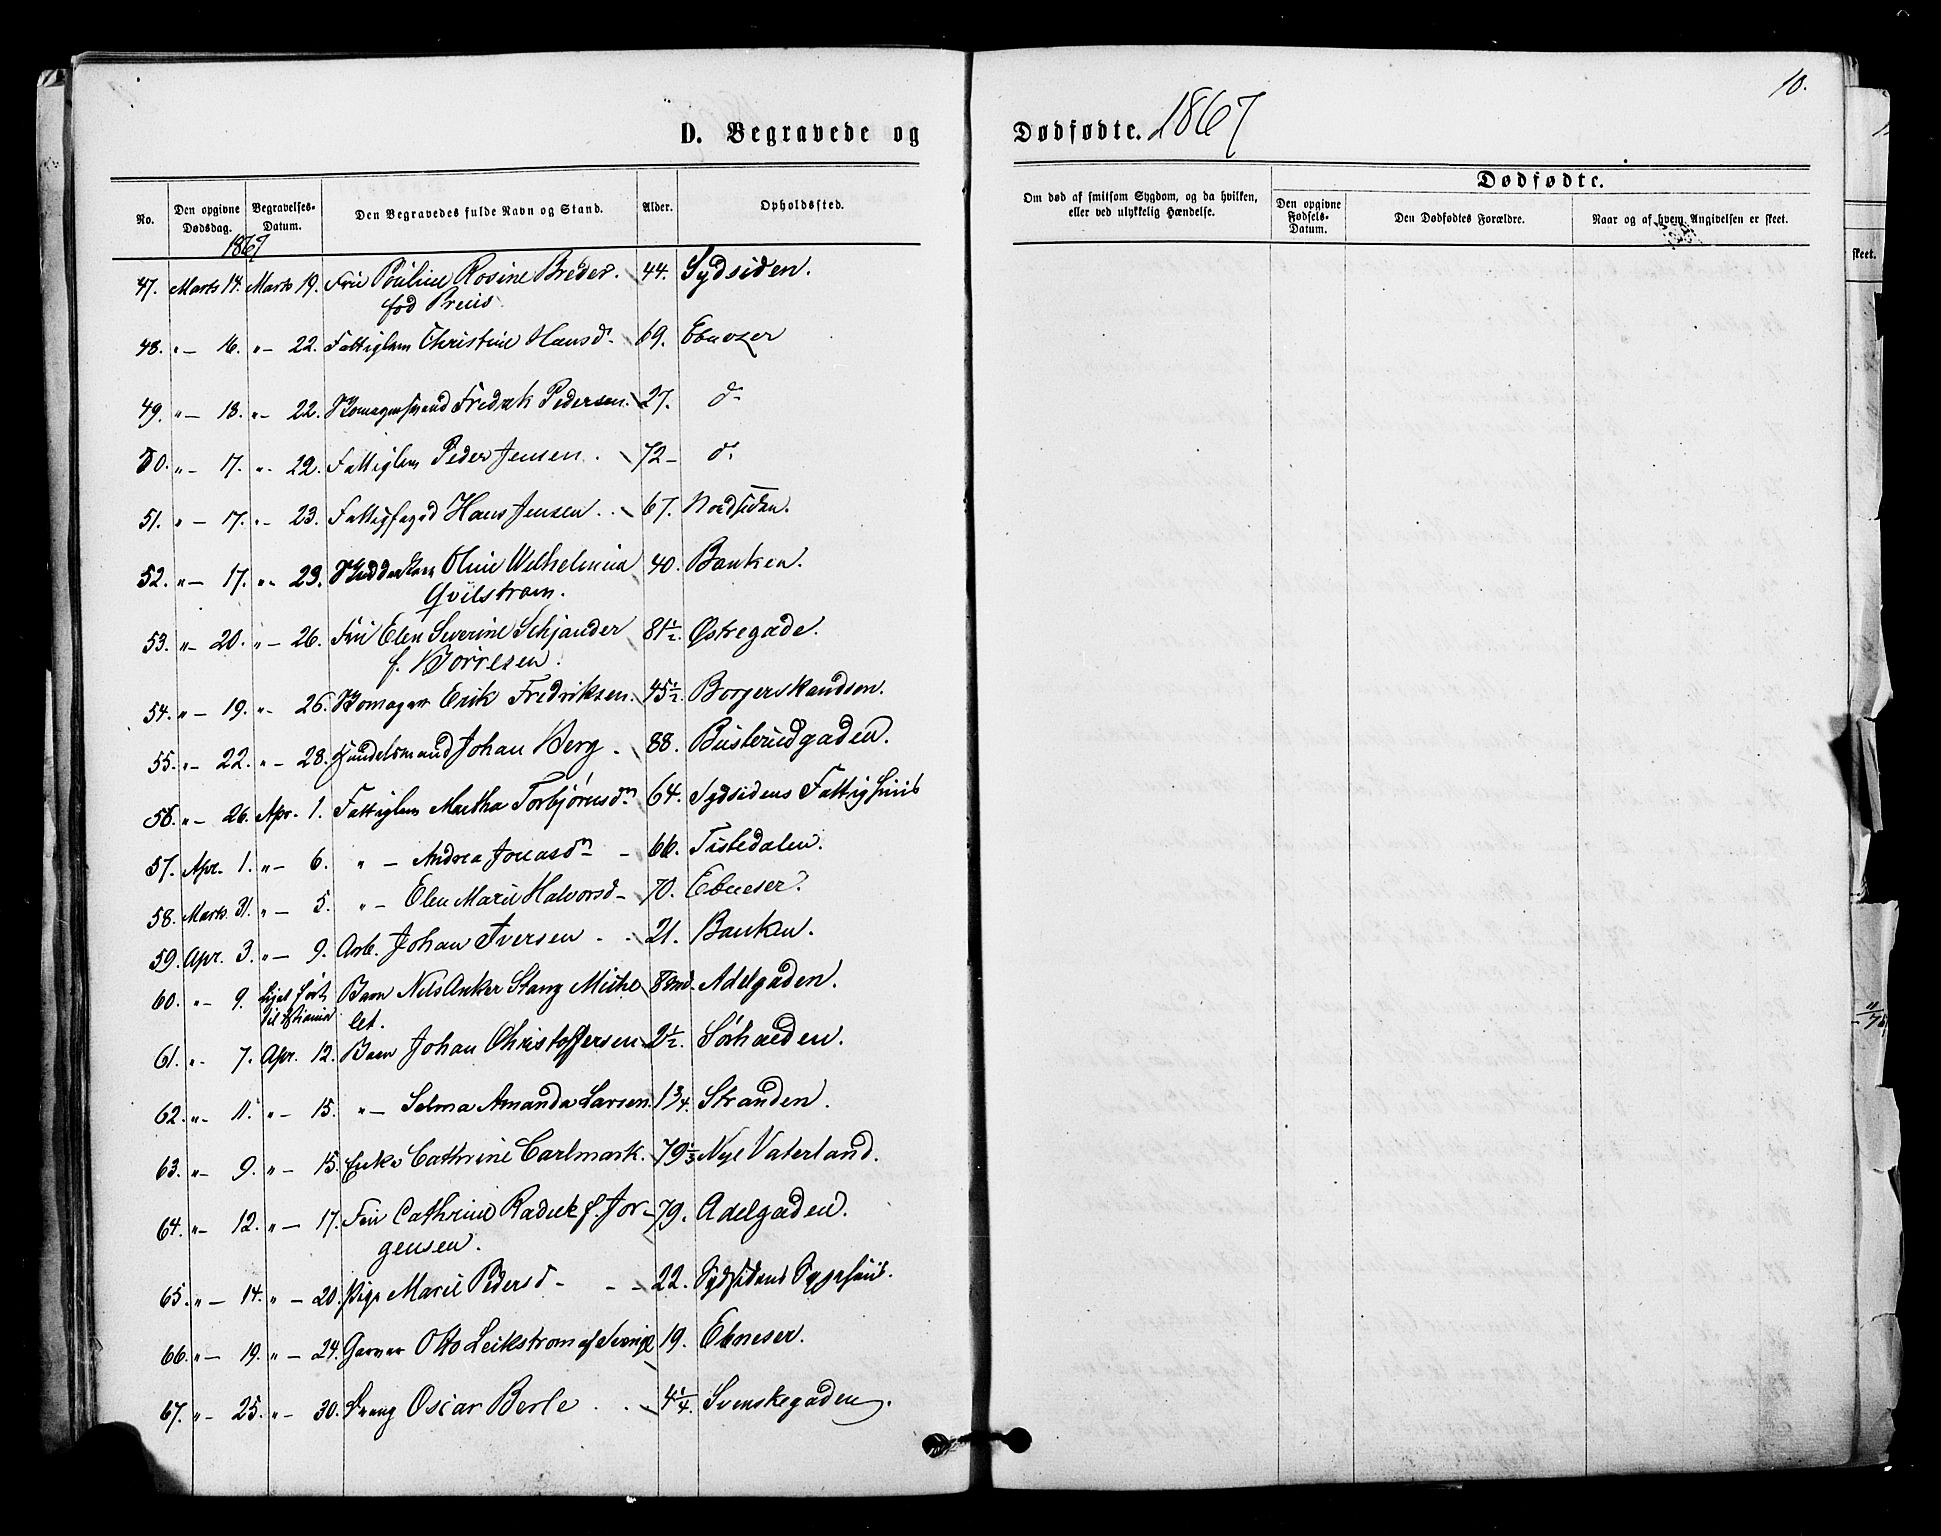 10.
D. Begravede og Dødfødte. 1867
No.
Den opgivne Dødsdag.
Begravelses-Datum.
Den Begravedes fulde Navn og Stand.
Alder.
Opholdssted.
Om død af smitsom Sygdom, og da hvilken, eller ved ulykkelig Hændelse.
Dødfødte.
Den opgivne Fødsels-Datum.
Den Dødfødtes Forældre.
Naar og af hvem Angivelsen er skeet.
skeet.
1867
47. Marts 14. Marts 19. Fru Pouline Rosine Breder. 44. Sydsiden.
fød Preus
48. " — 16. " — 22. Fattiglem Christine Hansd. 69. Ebenezer
49. " — 18. " — 22. Fredrik Pedersen. 27. do
50. " — 17. " — 22. Fattiglem Peder Jensen. 72 — do
51. " — 17. " — 23. Fattigfoged Hans Jensen. 67. Nordsiden.
52. " — 17. " — 23. Oline Wilhelmina 40. Banken.
Qvilstrøm.
53. " — 20. " — 26. Fru Elen Severine Schjander 81½. Østregade.
f. Børresen.
54. " — 19. " — 26. Erik Fredriksen. 45½. Borgerskandsen.
55. " — 22. " — 28. Handelsmand Johan Berg. 88. Busterudgaden.
56. " — 26. Apr. 1. Fattiglem Martha Torbjörnsdn 64. Sydsidens Fattighuus
57. Apr. 1. " — 6. " — Andrea Jonasdn — 66. Tistedalen.
58. Marts 31. " — 5. " — Elen Marie Halvorsd — 70. Ebneser.
59. Apr. 3. " — 9. Arb. Johan Iversen. 21. Banken.
60. " — 9. Liget ført Barn Nils Anker Stang Miche 8 md. Adelgaden.
til Xtiania let.
61. " — 7. Apr. 12. Barn Johan Christoffersen 2½. Sørhalden.
62. " — 11. " — 15. " — Selma Amanda Larsen. 1¾. Stranden.
63. " — 9. " — 15. Enke Cathrine Carlmark. 79⅓ Nye Vaterland.
64. " — 12. " — 17. Fru Cathrine Radick f. Jør- 79. Adelgaden.
gensen.
65. " — 14. " — 20. Pige Marie Pedersd — 22. Sydsidens Sygehuus.
66. " — 19. " — 24. Garver Otto Leikstrom af Sverige 19. Ebneser.
67. " — 25. " — 30. Dreng Oscar Berle 4¼. Svenskegaden.